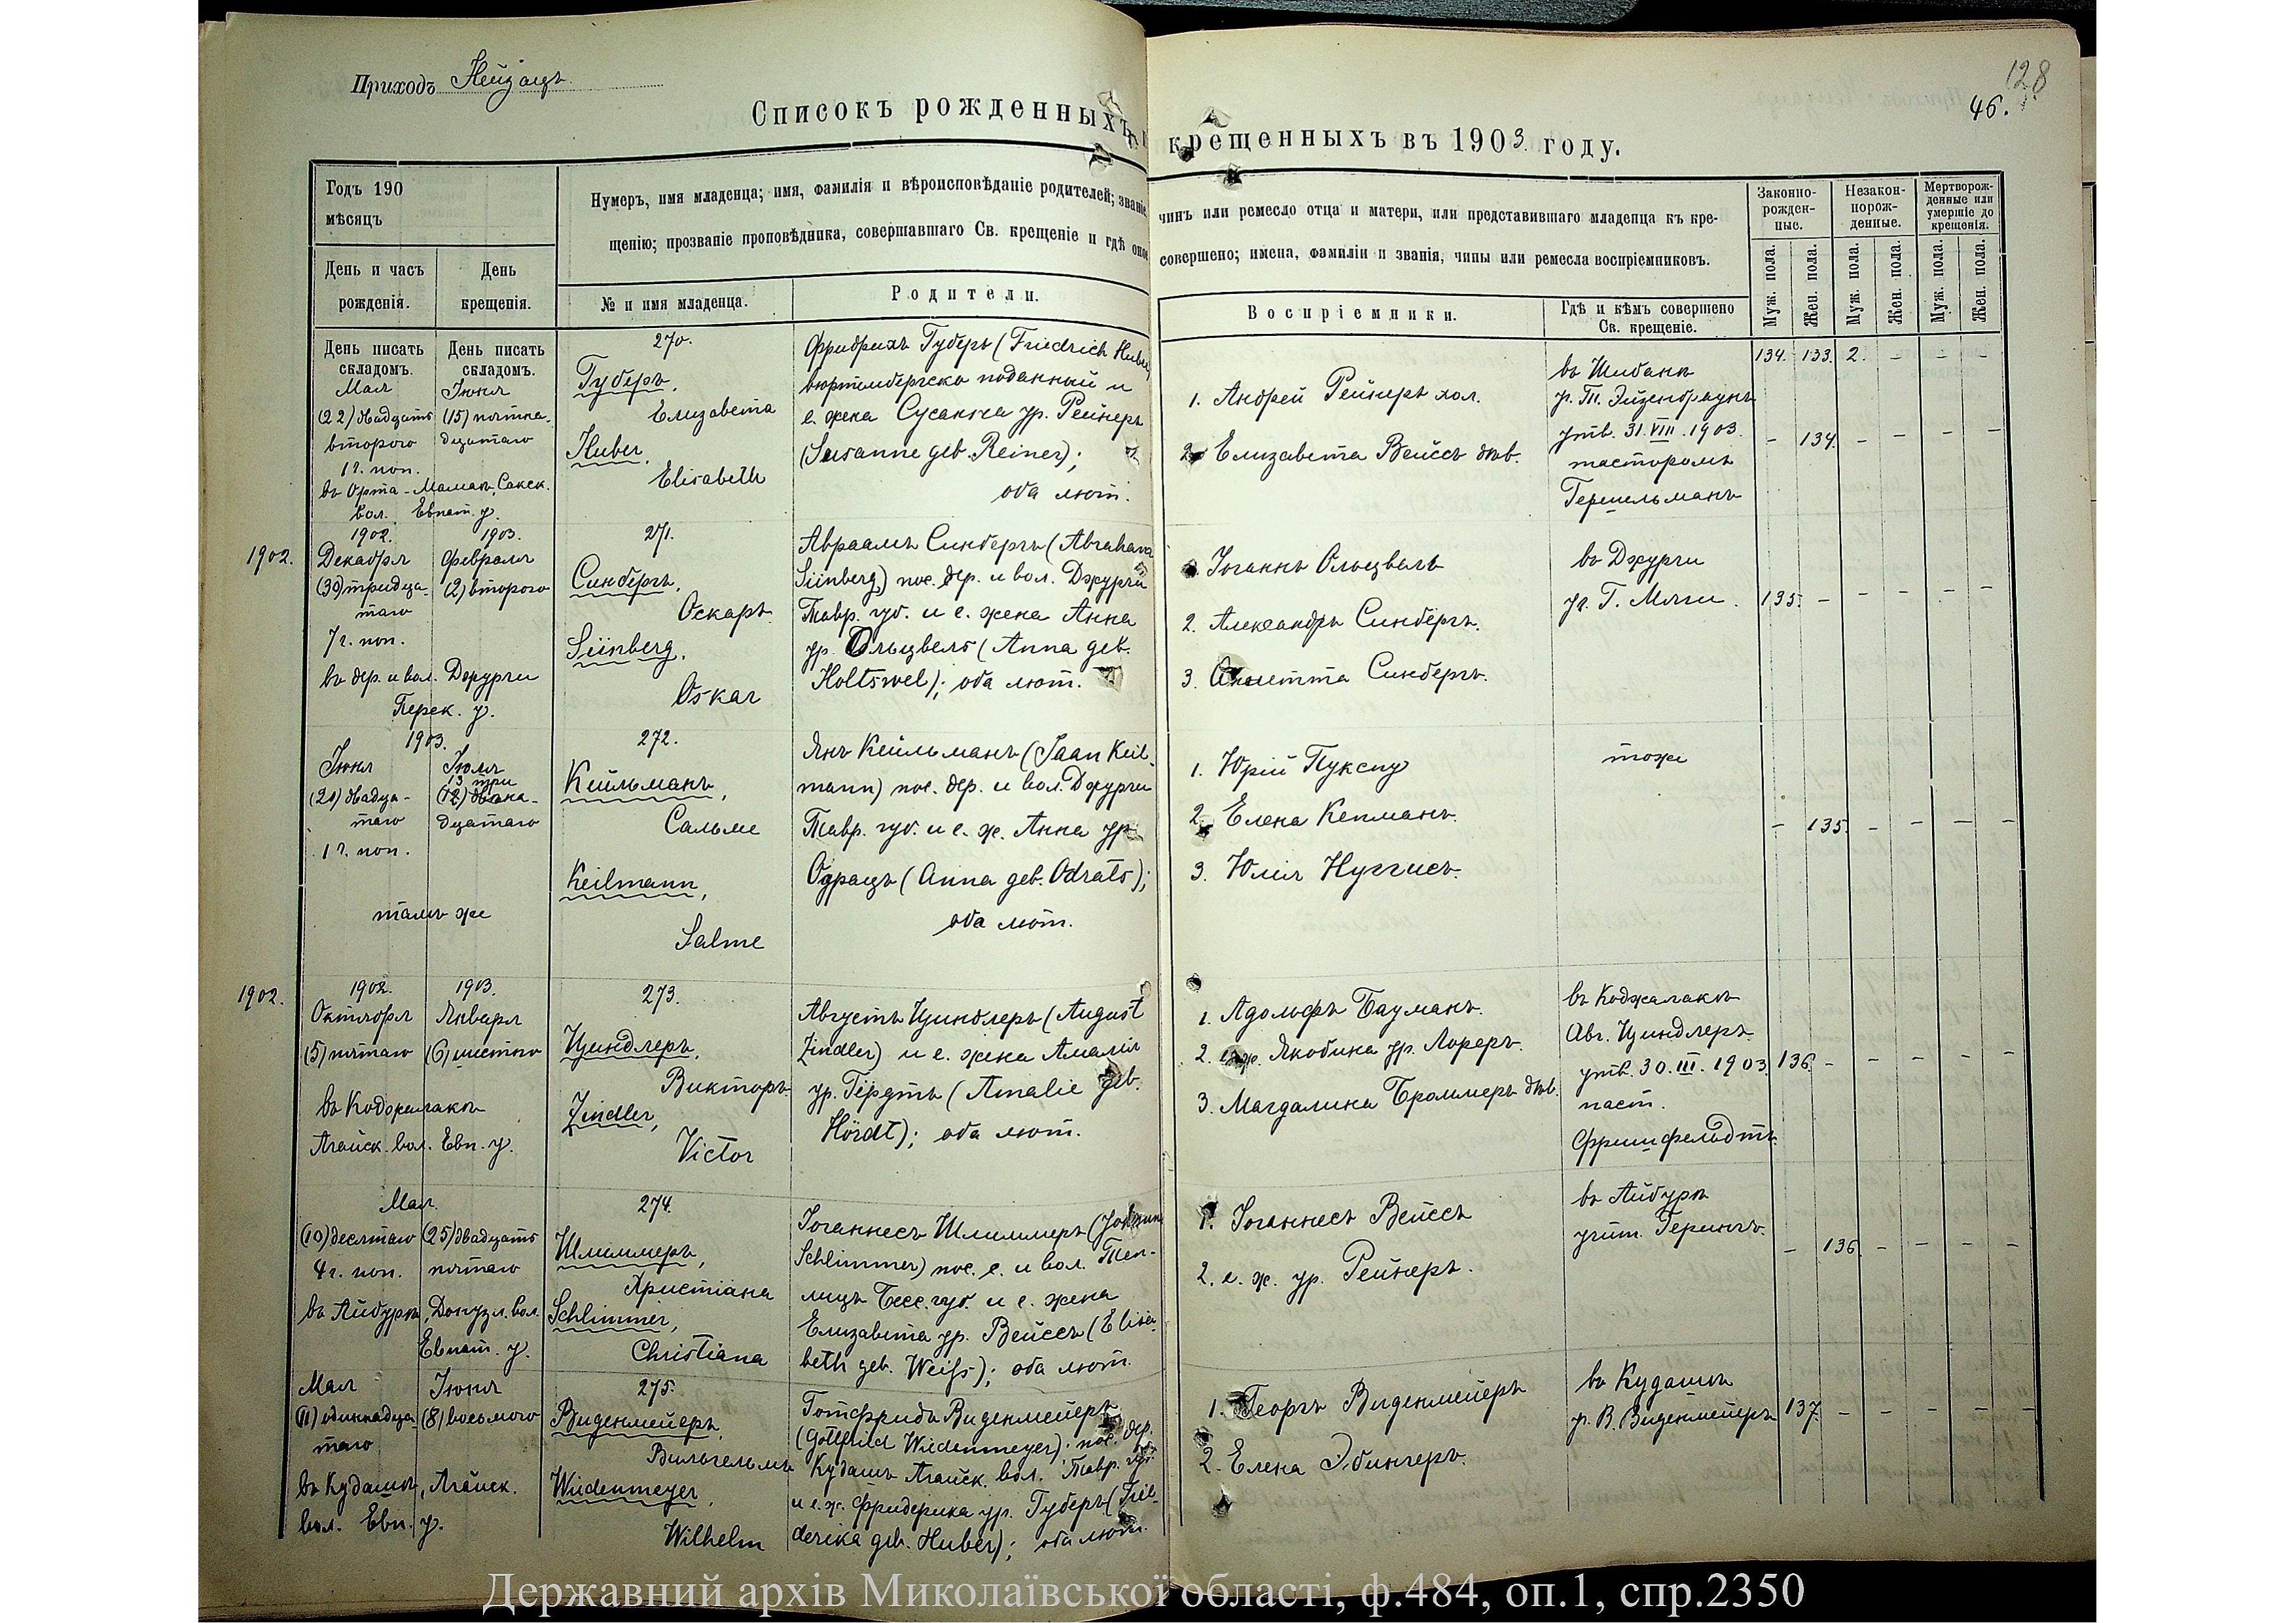 Приходъ Нейзацъ
128
46.
Списокъ рожденныхъ и крещенныхъ въ 1903 году.
Годъ 190
мѣсяцъ
День и часъ
рожденія.
День
крещенія.
Нумеръ, имя младенца; имя, фамилія и вѣроисповѣданіе родителей; званіе
щенію; прозваніе проповѣдника, совершавшаго Св. крещеніе и гдѣ оное
№ и имя младенца.
Родители.
чинъ или ремесло отца и матери, или представившаго младенца къ кре-
совершено; имена, фамиліи и званія, чины или ремесла воспріемниковъ.
Воспріемники.
Гдѣ и кѣмъ совершено
Св. крещеніе.
Законно-
рожден-
ные.
Незакон-
норож-
денные.
Мертворож-
денные или
умершіе до
крещенія.
Муж. пола.
Жен. пола.
Муж. пола.
Жен. пола.
Муж. пола.
Жен. пола.
День писать
складомъ.
День писать
складомъ.
134. 133. 2. – – –
Мая
(22) двадцать
второго
1 ч. поп.
Іюня
(15) пятна-
дцатаго
въ Орта-Мамакъ, Сакск.
вол. Евпат. у.
270.
Губеръ,
Елизавета
Huber,
Elisabeth
Фридрихъ Губеръ (Friedrich Huber)
вюртембергско подданный и
е. жена Сусанна ур. Рейнеръ
(Susanne geb. Reiner);
оба лют.
1. Андрей Рейнеръ хол.
2. Елизавета Вейссъ дѣв.
въ Шибанъ
р. Т. Эйзенбраунъ
утв. 31.VIII.1903.
пасторомъ
Гершельманъ
– 134. – – – –
1902.
1902.
Декабря
(30) тридца-
таго
7 ч. поп.
1903.
Февраля
(2) второго
въ дер. и вол. Джурчи
Перек. у.
271.
Синбергъ,
Оскаръ
Siinberg,
Oskar
Авраамъ Синбергъ (Abraham
Siinberg) пос. дер. и вол. Джурчи
Тавр. губ. и е. жена Анна
ур. Ольцвель (Anna geb.
Holtswel); оба лют.
1. Іоганнъ Ольцвель
2. Александръ Синбергъ.
3. Синбергъ.
въ Джурчи
уч. Г. Мяги.
135. – – – – –
1903.
Іюня
(20) двадца-
таго
1 ч. поп.
Іюля
13 три
(12) двѣна-
дцатаго
тамъ же
272.
Кейльманъ,
Сальме
Keilmann,
Salme
Янъ Кейльманъ (Jaan Keil-
mann) пос. дер. и вол. Джурчи
Тавр. губ. и е. ж. Анна ур.
Одрацъ (Anna geb. Odrats);
оба лют.
1. Юрій Пукспу
2. Елена Кепманъ.
3. Юлія Нуггисъ.
тоже
– 135. – – – –
1902.
1902.
Октября
(5) пятаго
1903.
Января
(6) шестого
въ Коджалакъ
Агайск. вол. Евп. у.
273.
Циндлеръ,
Викторъ
Zindler,
Victor
Августъ Циндлеръ (August
Zindler) и е. жена Амалія
ур. Гердтъ (Amalie geb.
Hördt); оба лют.
1. Адольфъ Бауманъ.
2. е. ж. Якобина ур. Лореръ.
3. Магдалина Броммеръ дѣв.
въ Коджалакъ
Авг. Циндлеръ
утв. 30.III.1903
паст.
Фришфельдтъ
136. – – – – –
Мая
(10) десятаго
4 ч. поп.
(25) двадцать
пятаго
въ Айбуръ, Донузл. вол.
Евпат. у.
274.
Шлиммеръ,
Христіана
Schlimmer,
Christiana
Іоганнесъ Шлиммеръ (Johannes
Schlimmer) пос. с. и вол. Теп-
лицъ Бесс. губ. и е. жена
Елизавета ур. Вейссъ (Elisa-
beth geb. Weiß); оба лют.
1. Іоганнесъ Вейссъ
2. е. ж. ур. Рейнеръ.
въ Айбуръ
учит. Герингъ.
– 136. – – – –
Мая
(11) одиннадца-
таго
Іюня
(8) восьмого
въ Кудашъ, Агайск.
вол. Евп. у.
275.
Виденмейеръ,
Вильгельмъ
Widenmeyer,
Wilhelm
Готфридъ Виденмейеръ
(Gottfried Wiedenmeyer); пос. дер.
Кудашъ Агайск. вол. Тавр. губ.
и е. ж. Фридерика ур. Губеръ (Frie-
derika geb. Huber); оба лют.
1. Георгъ Виденмейеръ
2. Елена Эбингеръ.
въ Кудашъ
р. В. Виденмейеръ
137. – – – – –
Державний архів Миколаївської області, ф.484, оп.1, спр.2350